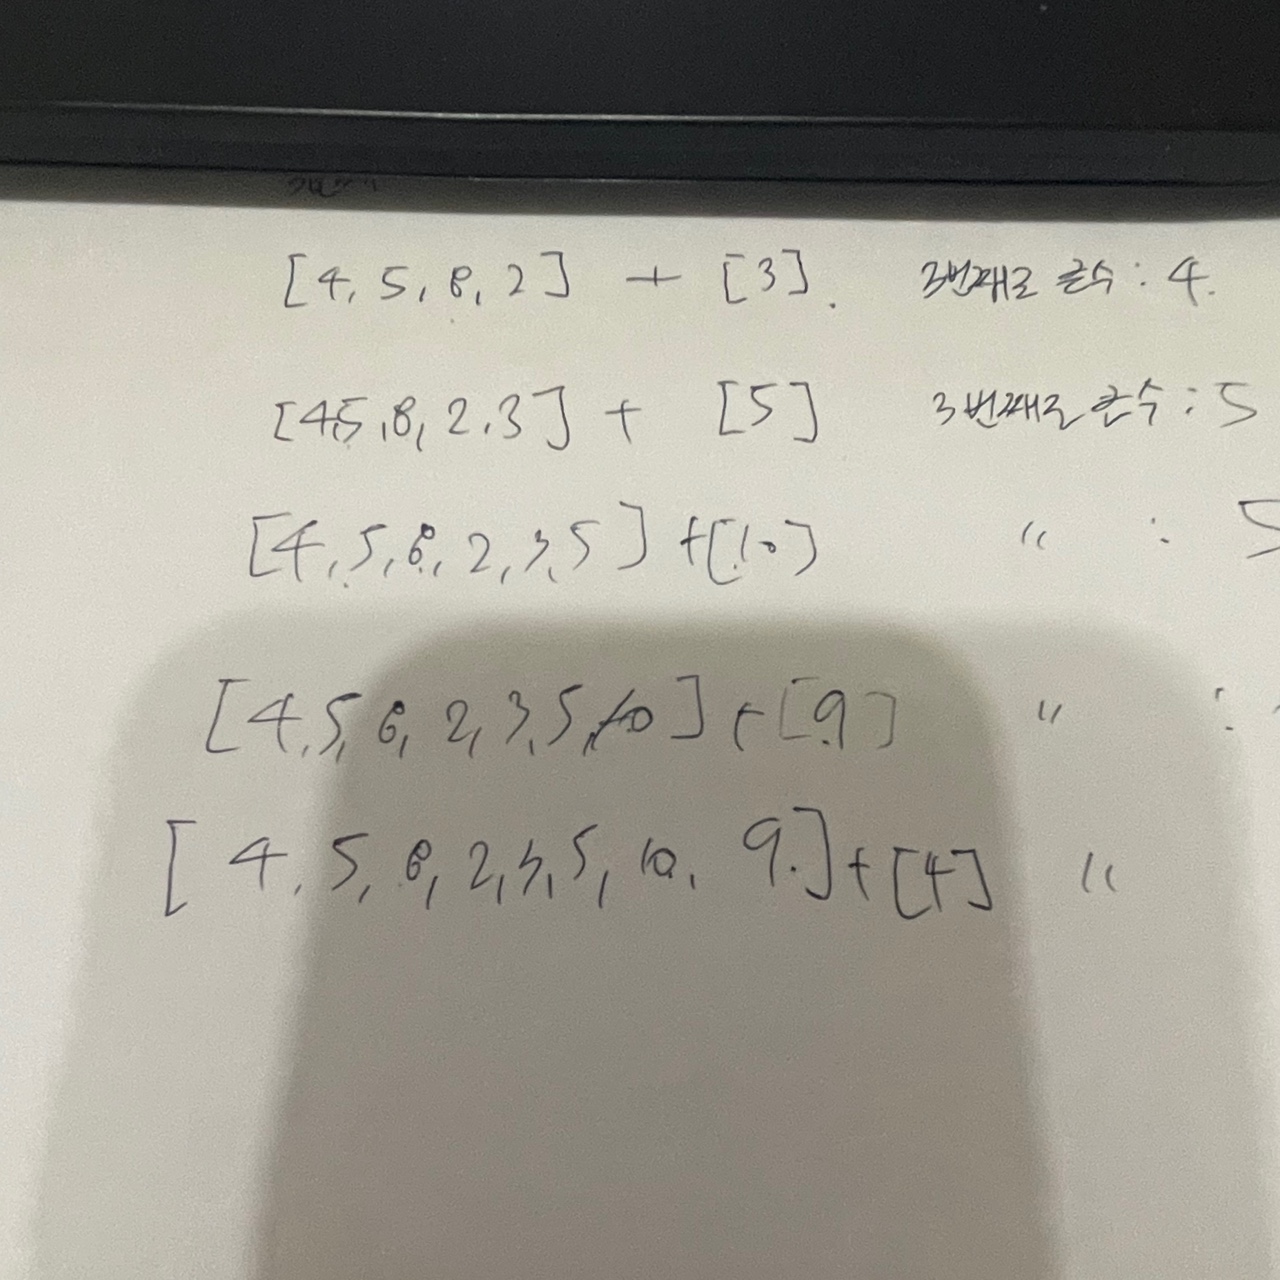 [4, 5, 8, 2] + [3]. 3번째로 큰수 : 4.
[4,5,8, 2.3] + [5] 3번째로 큰수 : 5
[4,5,8,2,3,5] +[10] " : 5
[4,5,8,2,3,5,10] + [9] " :
[4,5,8,2,3,5,10, 9.]+[4] "